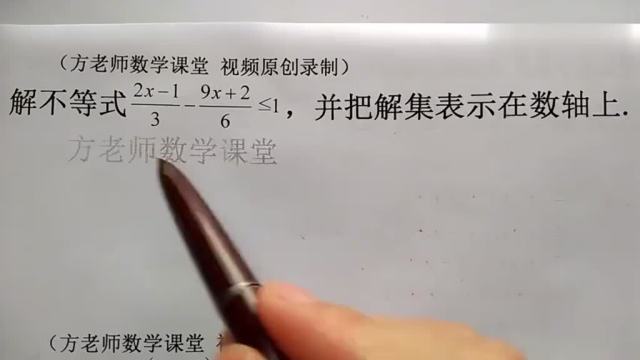 （方老师数学课堂 视频原创录制）
解不等式 (2x−1)/3 − (9x+2)/6 ≤1，并把解集表示在数轴上.
方老师数学课堂
（方老师数学课堂